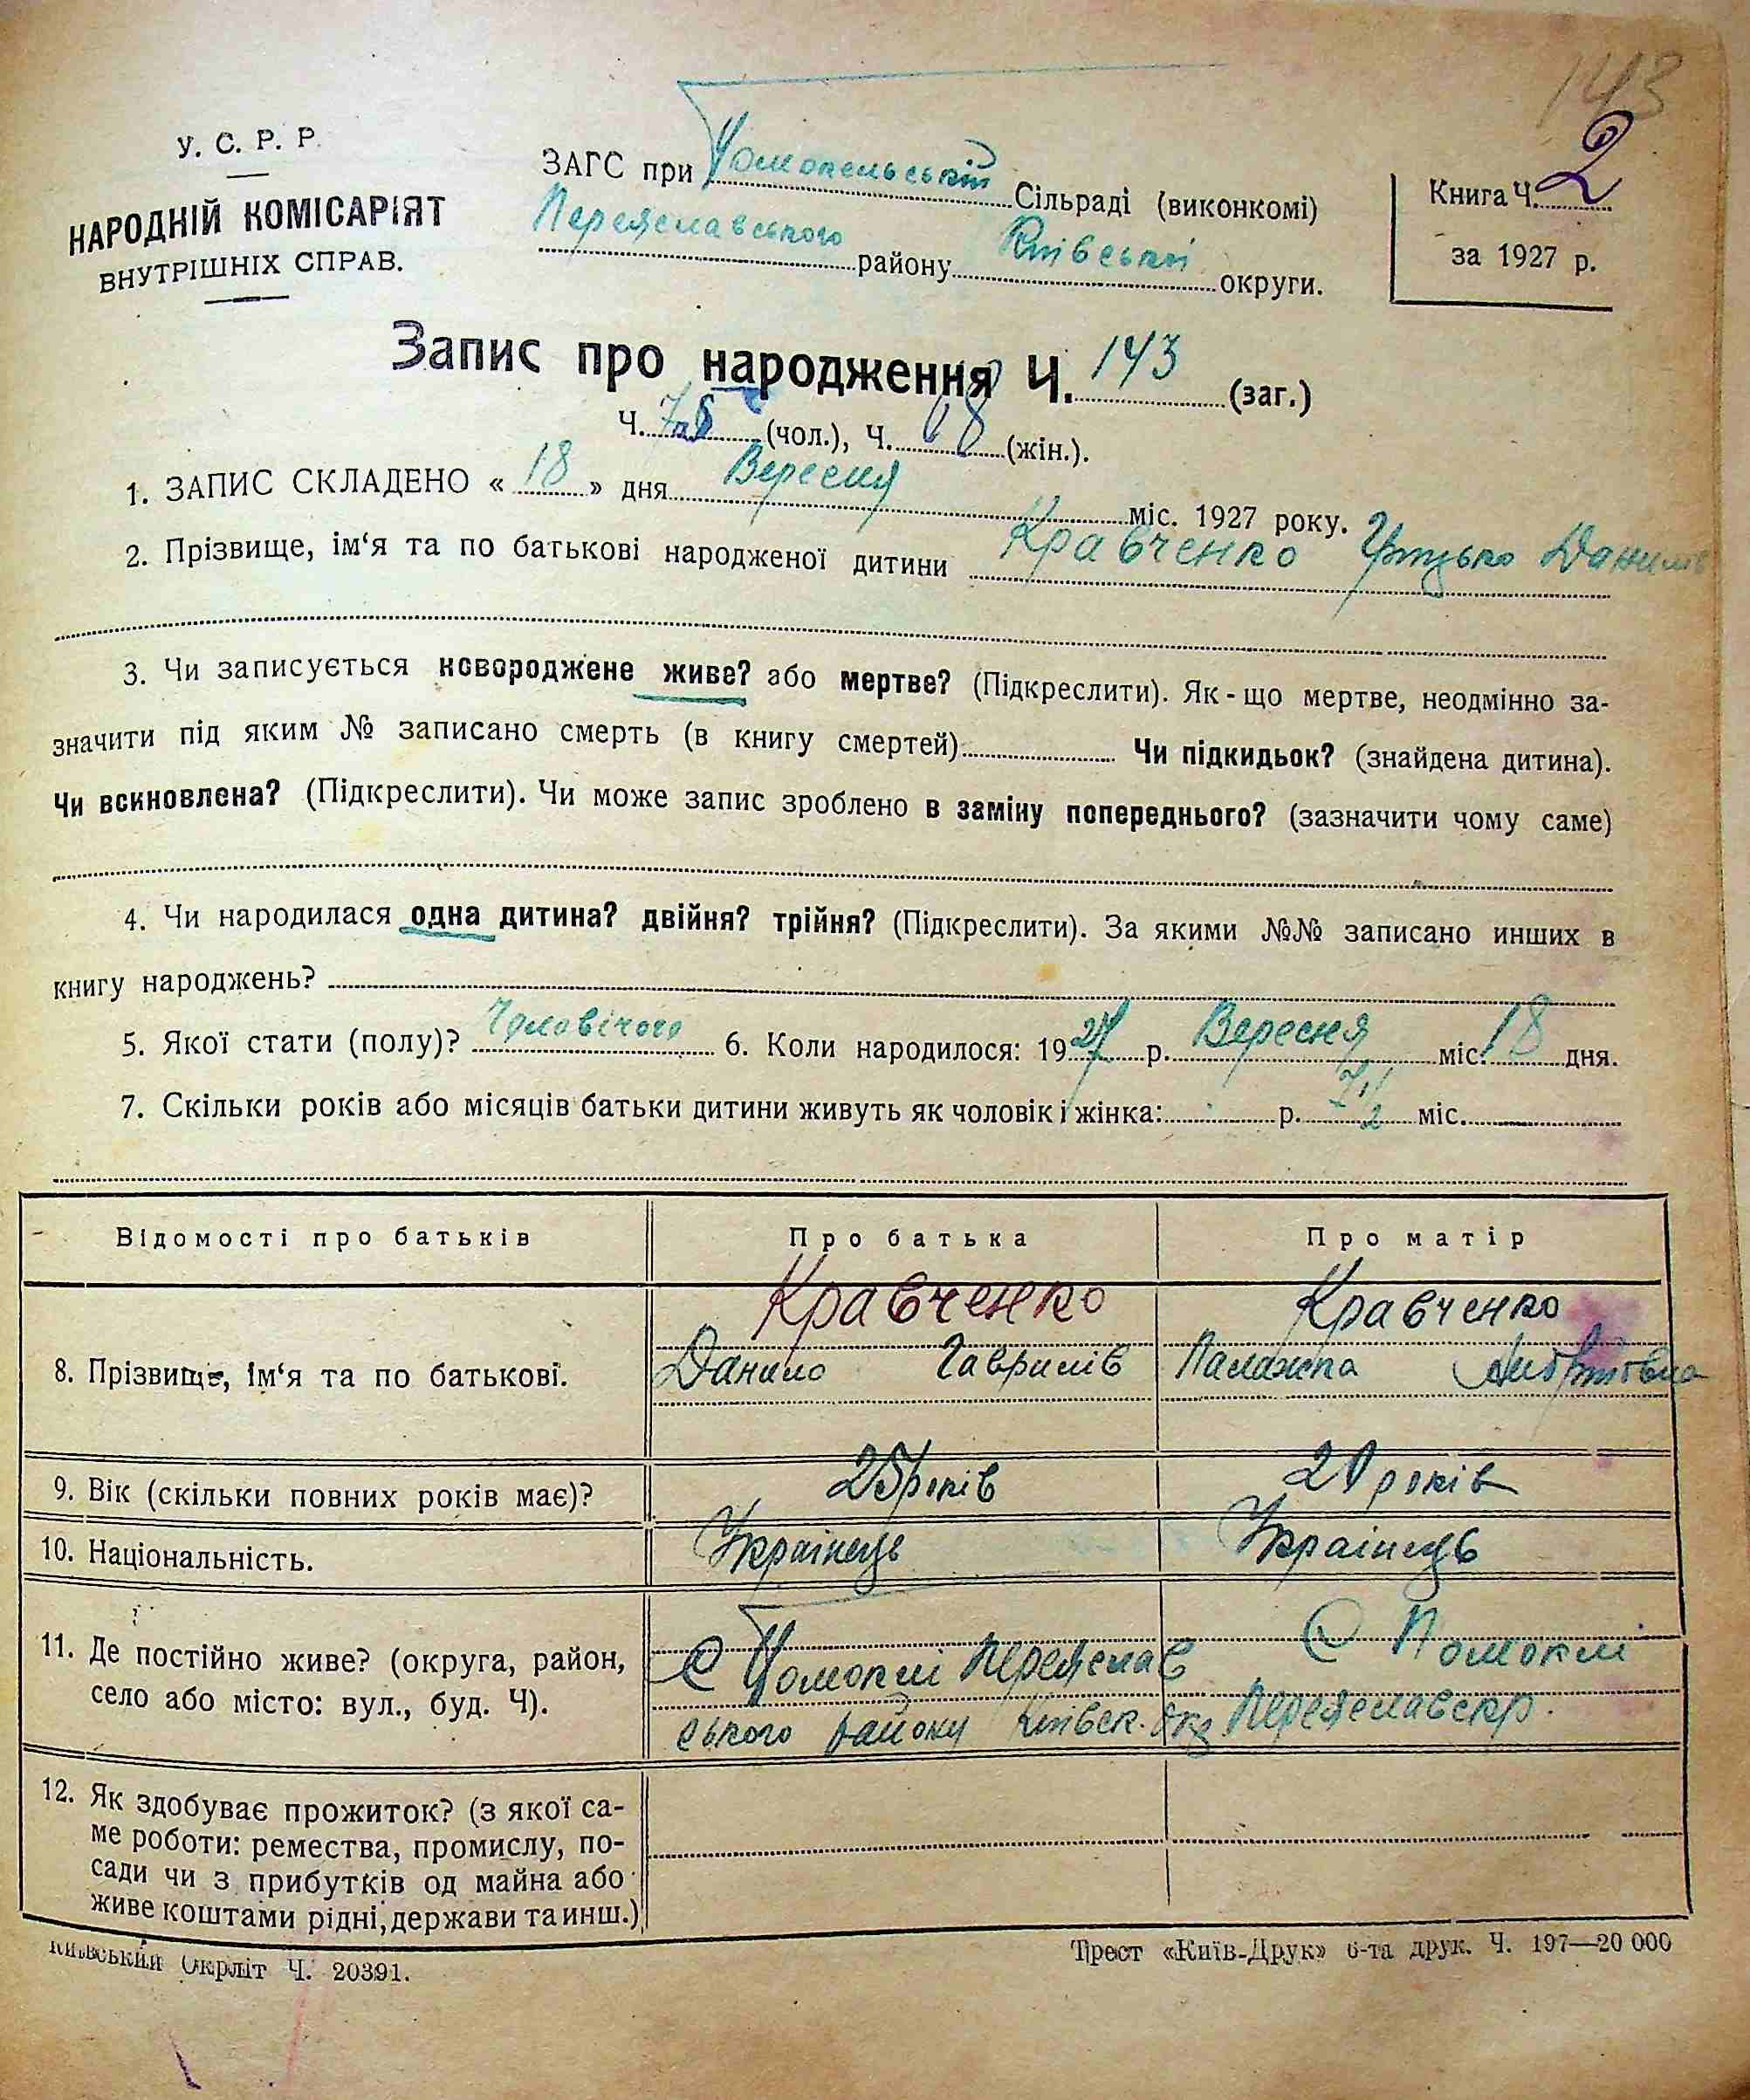 143
У. С. Р. Р.
НАРОДНІЙ КОМІСАРІЯТ
ВНУТРІШНІХ СПРАВ.
ЗАГС при Помокельській Сільраді (виконкомі)
Переяславського району Київської округи.
Книга Ч. 2
за 1927 р.
Запис про народження Ч. 143 (заг.)
Ч. (чол.), Ч. 68 (жін.).
1. ЗАПИС СКЛАДЕНО « 18 » дня Вересня міс. 1927 року.
2. Прізвище, ім‘я та по батькові народженої дитини Кравченко Грицько Данилів
3. Чи записується новороджене живе? або мертве? (Підкреслити). Як-що мертве, неодмінно за-
значити під яким № записано смерть (в книгу смертей) Чи підкидьок? (знайдена дитина).
Чи всиновлена? (Підкреслити). Чи може запис зроблено в заміну попереднього? (зазначити чому саме)
4. Чи народилася одна дитина? двійня? трійня? (Підкреслити). За якими №№ записано инших в
книгу народжень?
5. Якої стати (полу)? Чоловічого 6. Коли народилося: 1927 р. Вересня міс. 18 дня.
7. Скільки років або місяців батьки дитини живуть як чоловік і жінка: р. 7 1/2 міс.
Відомості про батьків Про батька Про матір
Кравченко Кравченко
8. Прізвище, ім‘я та по батькові. Данило Гаврилів Палажка
9. Вік (скільки повних років має)? 25 років 20 років
10. Національність. Українець Українець
11. Де постійно живе? (округа, район, С Помоклі Переяслав С Помоклі
село або місто: вул., буд. Ч). ського району Київськ. Окр Переяславск р.
12. Як здобуває прожиток? (з якої са-
ме роботи: ремества, промислу, по-
сади чи з прибутків од майна або
живе коштами рідні, держави та инш.)
Київський Окрліт Ч. 20391.
Трест «Київ-Друк» 6-та друк. Ч. 197—20 000